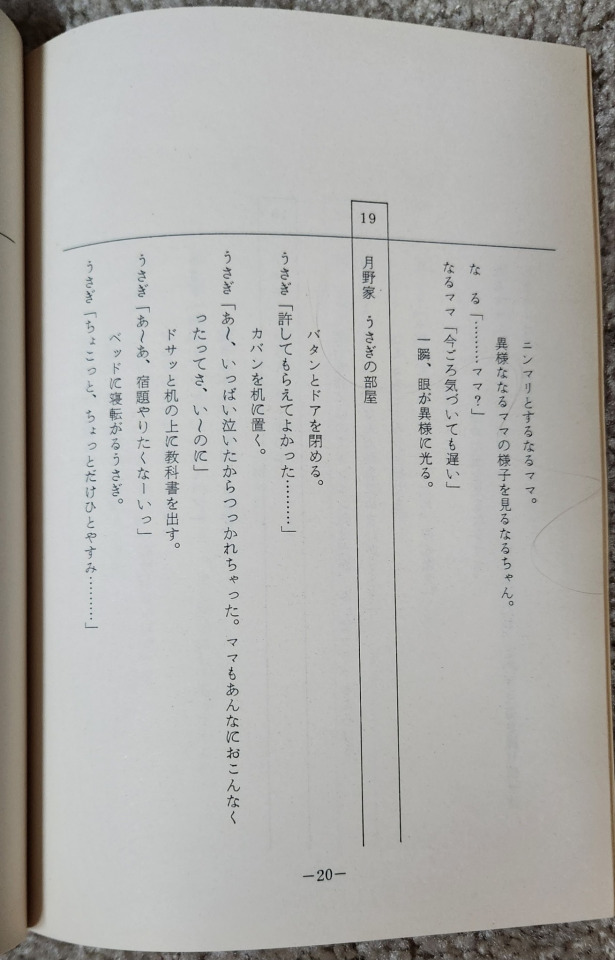 ニンマリとするなるママ。
異様ななるママの様子を見るなるちゃん。
なる「………ママ?」
なるママ「今ごろ気づいても遅い」
一瞬、眼が異様に光る。
19 月野家 うさぎの部屋
バタンとドアを閉める。
うさぎ「許してもらえてよかった………」
カバンを机に置く。
うさぎ「あ〜、いっぱい泣いたからつっかれちゃった。ママもあんなにおこんなく
ったってさ、い〜のに」
ドサッと机の上に教科書を出す。
うさぎ「あ〜あ、宿題やりたくなーいっ」
ベッドに寝転がるうさぎ。
うさぎ「ちょこっと、ちょっとだけひとやすみ………」
—20—